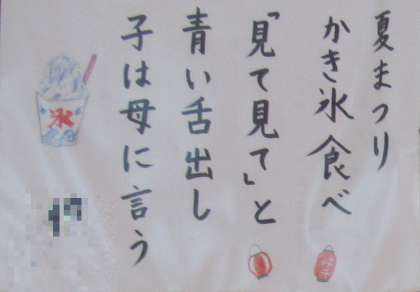 夏まつり
かき氷食べ
「見て見て」と
青い舌出し
子は母に言う
氷